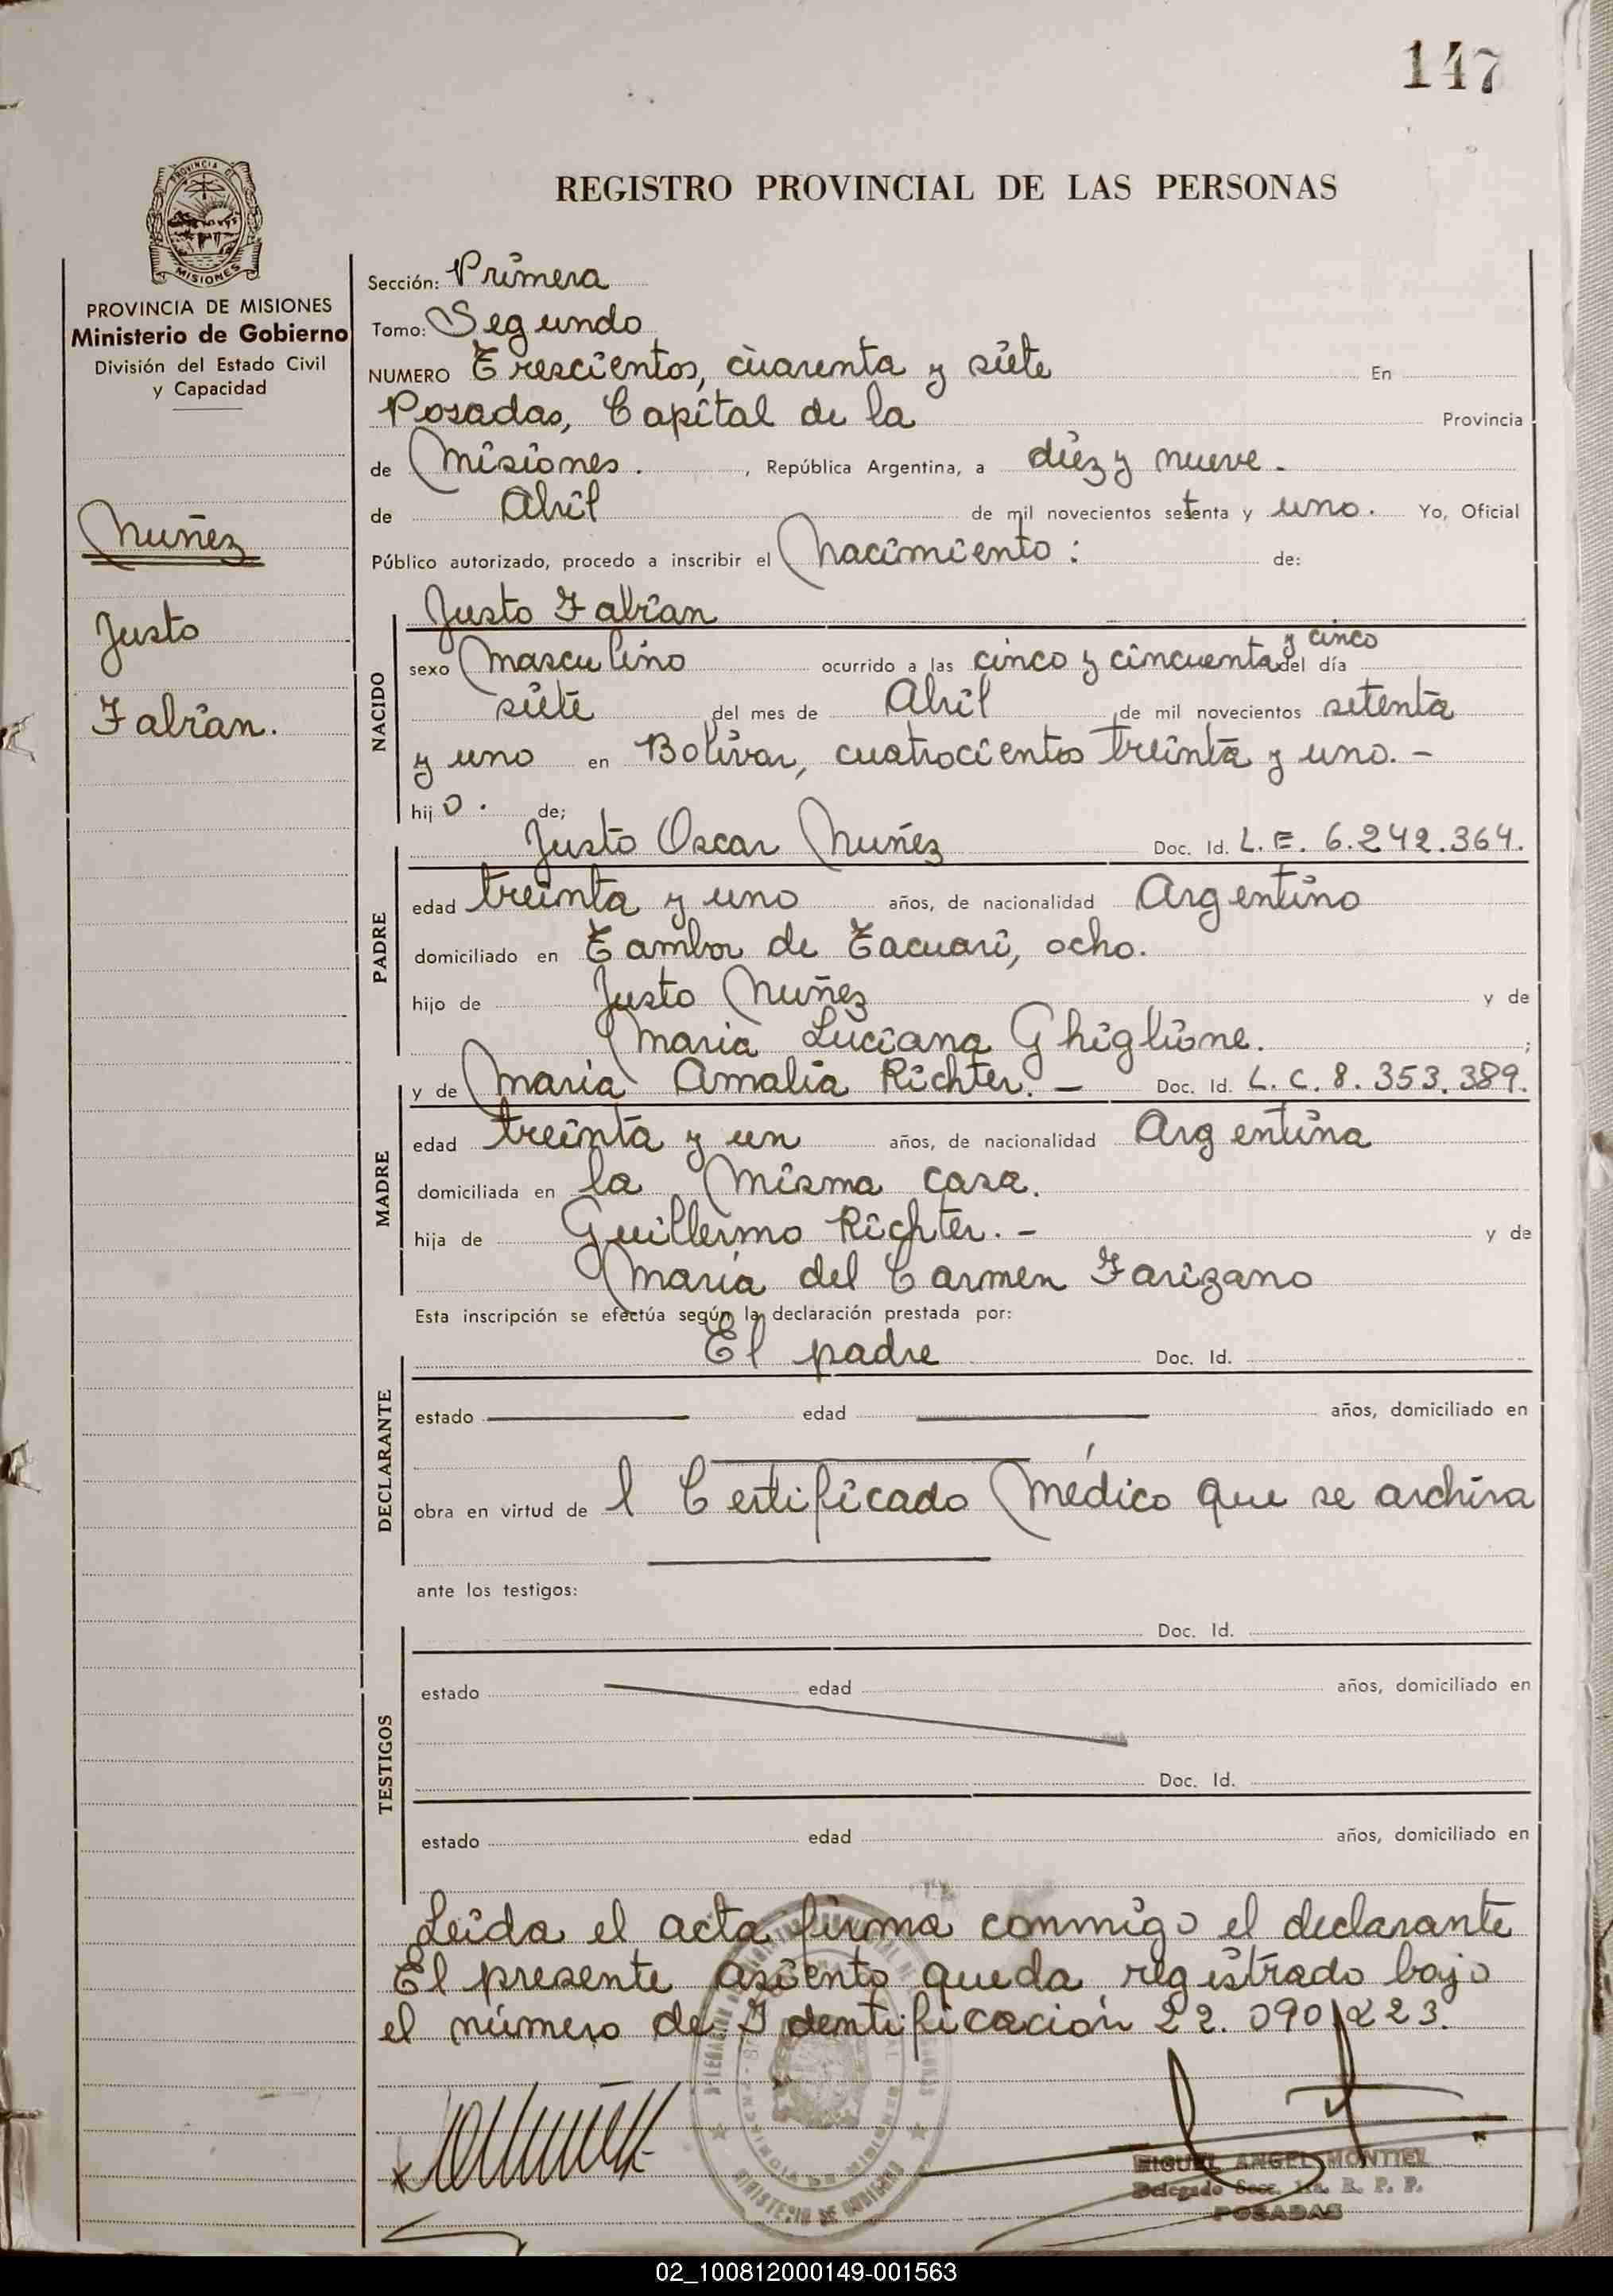 147
REGISTRO PROVINCIAL DE LAS PERSONAS
PROVINCIA DE
MISIONES
PROVINCIA DE MISIONES
Ministerio de Gobierno
División del Estado Civil
y Capacidad
Nuñez
Justo
Fabian.
Sección: Primera
Tomo: Segundo
NUMERO Trescientos, cuarenta y siete En
Posadas, Capital de la Provincia
de Misiones. , República Argentina, a diez y nueve.
de Abril de mil novecientos setenta y uno. Yo, Oficial
Público autorizado, procedo a inscribir el Nacimiento: de:
NACIDO
Justo Fabian
y cinco
sexo Masculino ocurrido a las cinco y cincuenta del día
siete del mes de Abril de mil novecientos setenta
y uno en Bolivar, cuatrocientos treinta y uno. -
hijo. de;
PADRE
Justo Oscar Nuñez Doc. Id. L.E. 6.242.364.
edad treinta y uno años, de nacionalidad Argentino
domiciliado en Tambor de Tacuari, ocho.
hijo de Justo Nuñez y de
Maria Luciana Ghiglione. ;
MADRE
y de María Amalia Richter. - Doc. Id. L.C. 8.353.389.
edad treinta y un años, de nacionalidad Argentina
domiciliada en la misma casa.
hija de Guillermo Richter. - y de
María del Carmen Farizano
Esta inscripción se efectúa según la declaración prestada por:
DECLARANTE
El padre Doc. Id.
estado edad años, domiciliado en
obra en virtud de l Certificado Médico que se archiva
ante los testigos:
TESTIGOS
Doc. Id.
estado edad años, domiciliado en
Doc. Id.
estado edad años, domiciliado en
Leida el acta firma conmigo el declarante
El presente asiento queda registrado bajo
el número de Identificación 22.090.223.
MIGUEL ANGEL MONTIEL
Delegado Secc. 1a. R. P. P.
POSADAS
MINISTERIO DE GOBIERNO
02_100812000149-001563